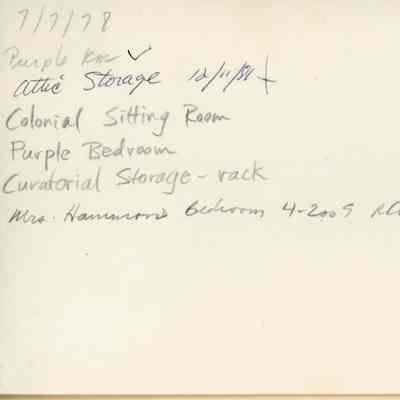 7/7/78
Purple Rm ✓
Attic Storage 12/11/81
Colonial Sitting Room
Purple Bedroom
Curatorial Storage - rack
Mrs. Hammond's Bedroom 4-2009